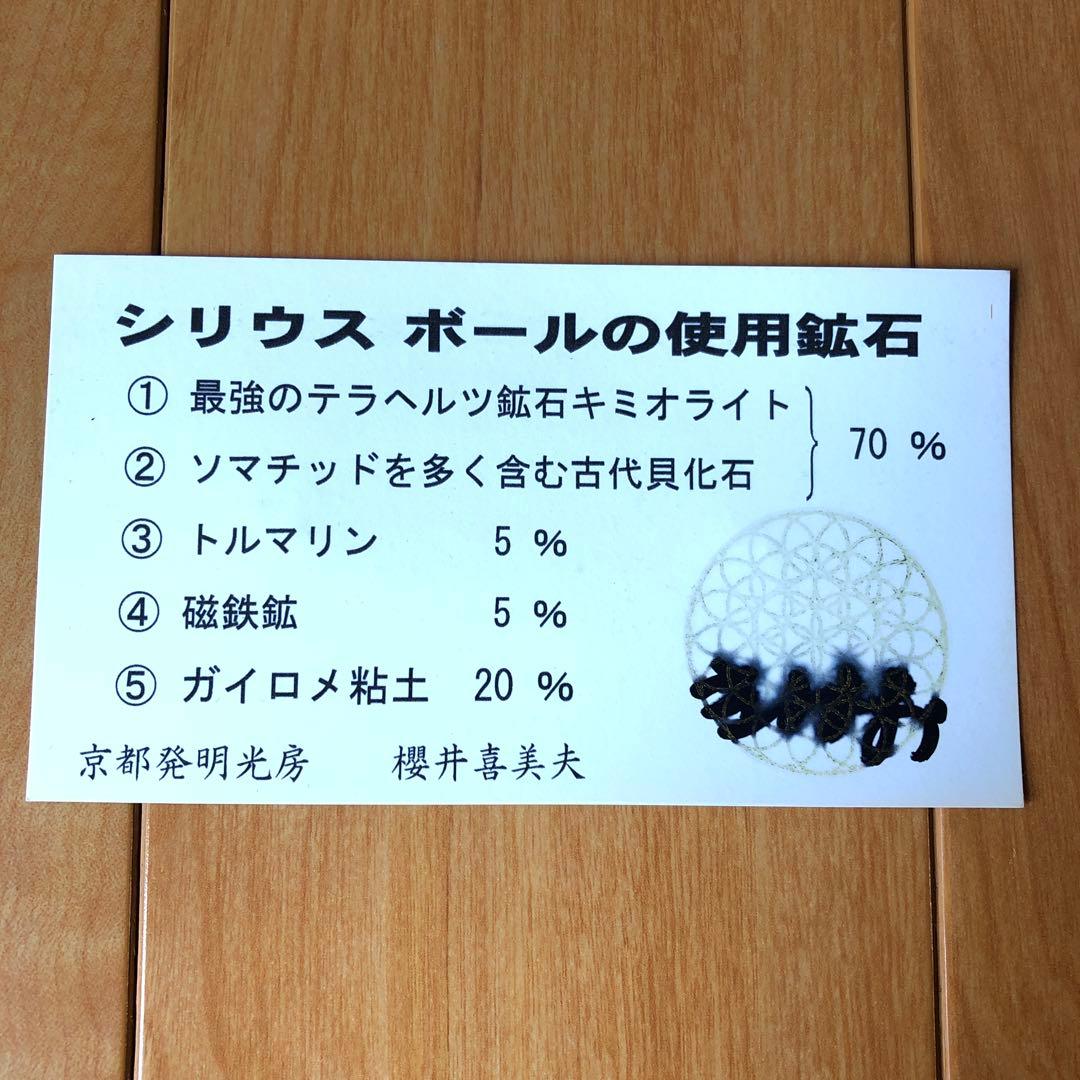 シリウス ボールの使用鉱石
① 最強のテラヘルツ鉱石キミオライト
② ソマチッドを多く含む古代貝化石
70 %
③ トルマリン 5 %
④ 磁鉄鉱 5 %
⑤ ガイロメ粘土 20 %
京都発明光房 櫻井喜美夫